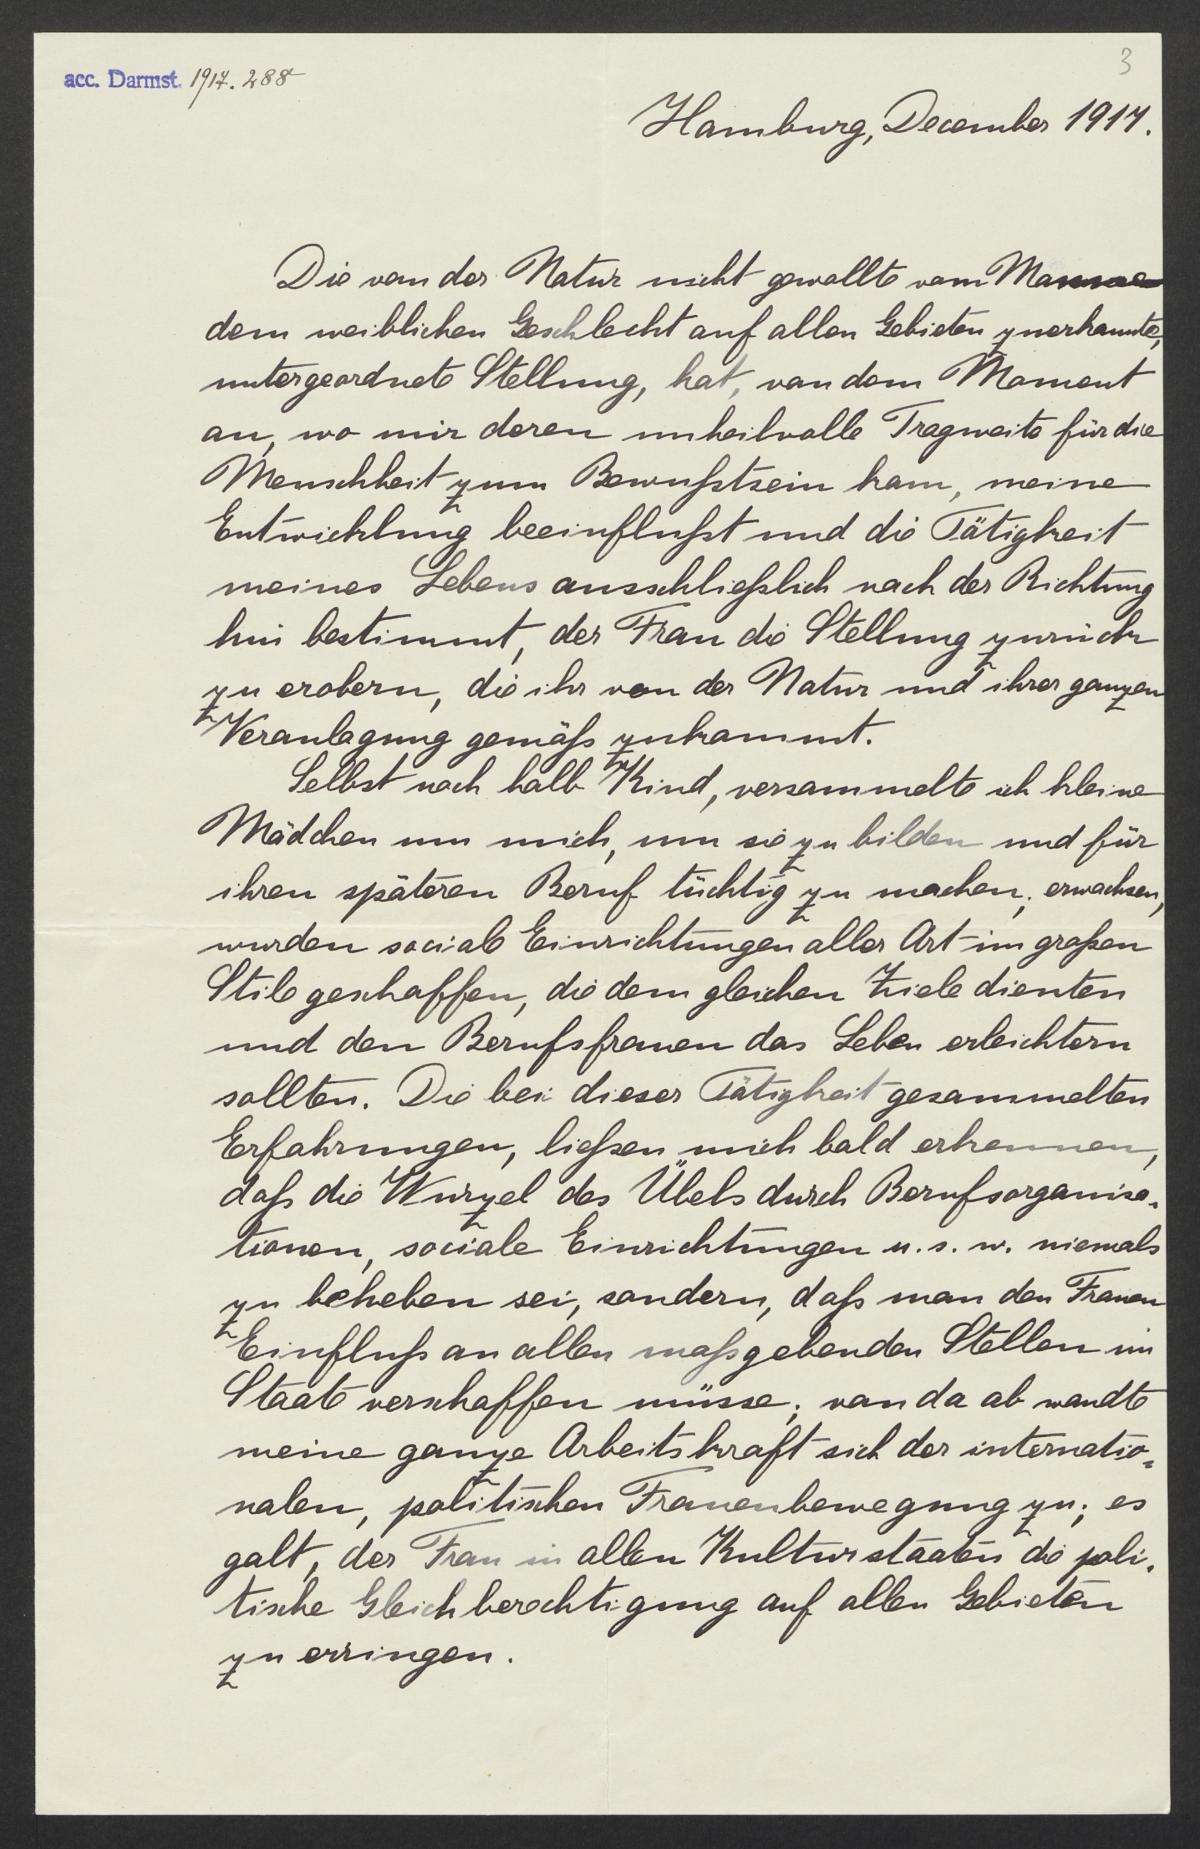 3
acc. Darmst. 1917. 288
Hamburg, December 1917.
Die von der Natur nicht gewollte vom Manne
dem weiblichen Geschlecht auf allen Gebieten zuerkannte,
untergeordnete Stellung, hat, von dem Moment
an, wo mir deren unheilvolle Tragweite für die
Menschheit zum Bewußtsein kam, meine
Entwicklung beeinflußt und die Tätigkeit
meines Lebens ausschließlich nach der Richtung
hin bestimmt, der Frau die Stellung zurück
zu erobern, die ihr von der Natur und ihrer ganzen
Veranlagung gemäß zukommt.
Selbst noch halb Kind, versammelte ich kleine
Mädchen um mich, um sie zu bilden und für
ihren späteren Beruf tüchtig zu machen; erwachsen,
wurden sociale Einrichtungen aller Art im großen
Stile geschaffen, die dem gleichen Ziele dienten
und den Berufsfrauen das Leben erleichtern
sollten. Die bei dieser Tätigkeit gesammelten
Erfahrungen, ließen mich bald erkennen,
daß die Wurzel des Übels durch Berufsorganisa-
tionen, sociale Einrichtungen u. s. w. niemals
zu beheben sei, sondern, daß man den Frauen
Einfluß an allen maßgebenden Stellen im
Staate verschaffen müsse; von da ab wandte
meine ganze Arbeitskraft sich der internatio-
nalen, politischen Frauenbewegung zu; es
galt, der Frau in allen Kulturstaaten die poli-
tische Gleichberechtigung auf allen Gebieten
zu erringen.